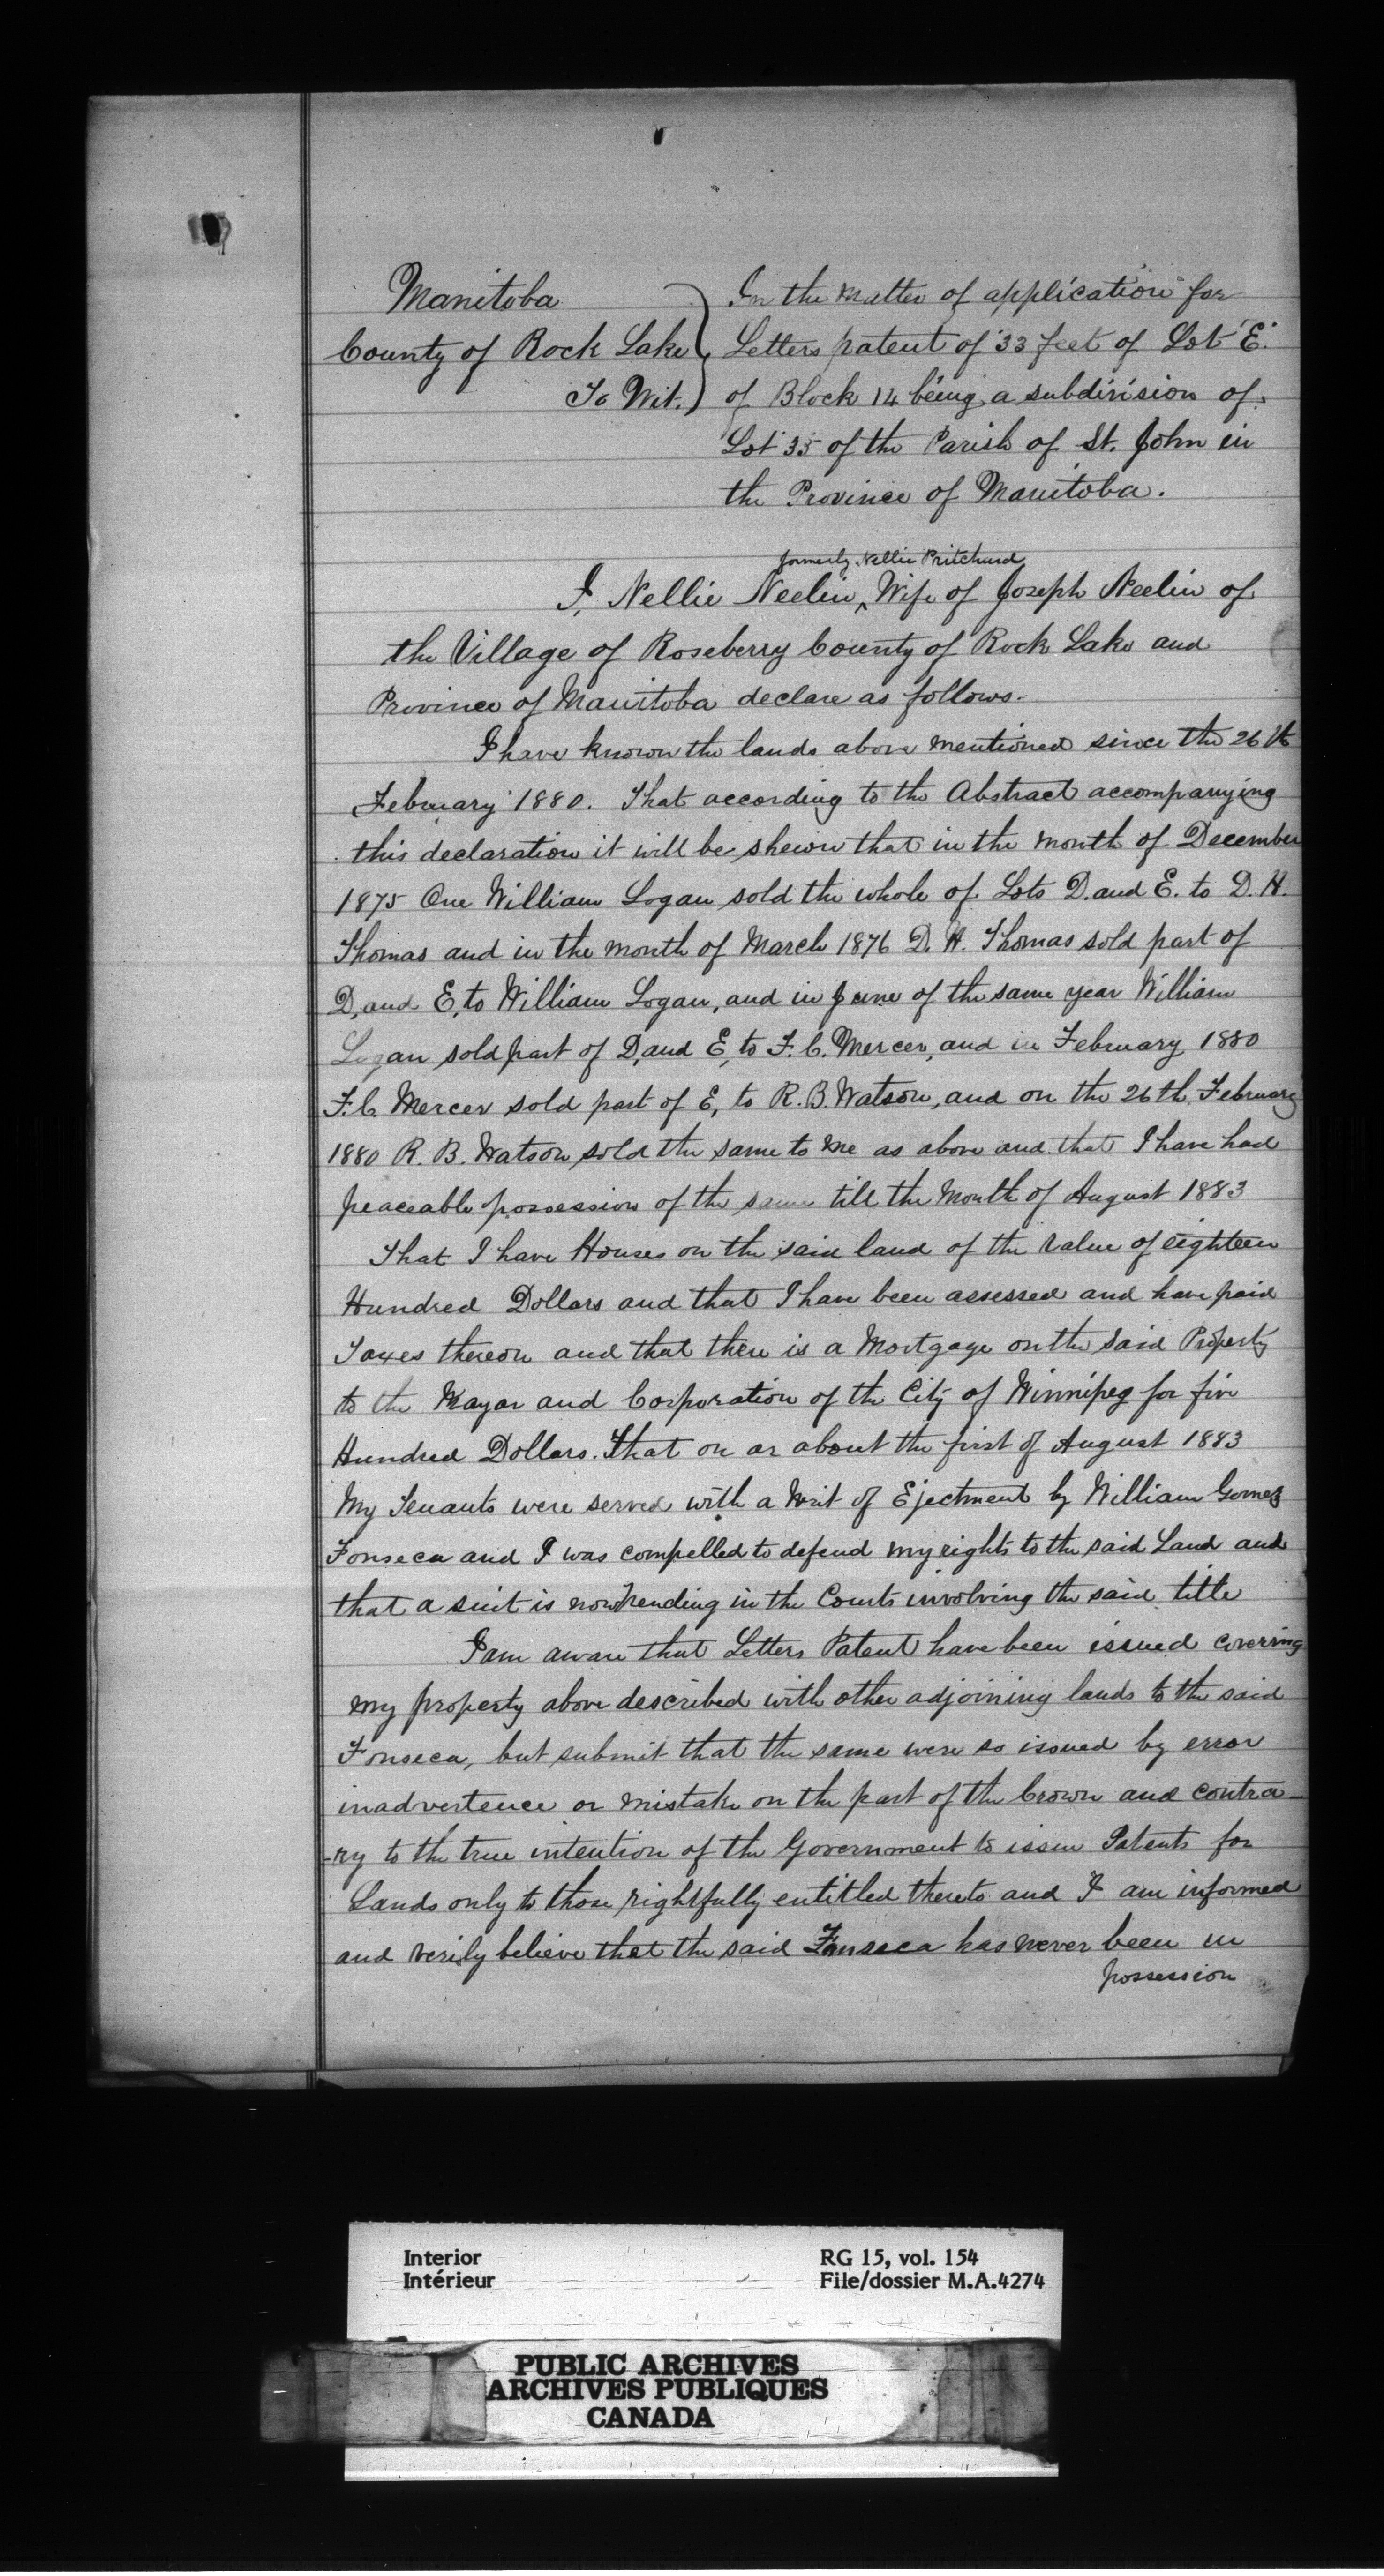 Manitoba
County of Rock Lake
To Wit.
In the matter of application for
Letters patent of 33 feet of Lot "E"
of Block 14 being a subdivision of
Lot 35 of the Parish of St. John in
the Province of Manitoba.
formerly Nellie Pritchard
I, Nellie Neelin, ^ Wife of Joseph Neelin of
the Village of Roseberry County of Rock Lake and
Province of Manitoba declare as follows.
I have known the lands above mentioned since the 26th
February 1880. That according to the Abstract accompanying
this declaration it will be shewn that in the month of December
1875 One William Logan sold the whole of Lots D. and E. to D. H.
Thomas and in the month of March 1876 D. H. Thomas sold part of
D, and E, to William Logan, and in June of the same year William
Logan sold part of D, and E, to F. C. Mercer, and in February 1880
F. C. Mercer sold part of E, to R. B. Watson, and on the 26th February
1880 R. B. Watson sold the same to me as above and that I have had
peaceable possession of the same till the Month of August 1883
That I have Houses on the said land of the value of eighteen
Hundred Dollars and that I have been assessed and have paid
Taxes thereon and that there is a Mortgage on the said Property
to the Mayor and Corporation of the City of Winnipeg for five
Hundred Dollars. That on or about the first of August 1883
My Tenants were served with a Writ of Ejectment by William Gomez
Fonseca and I was compelled to defend my rights to the said Land and
that a suit is now pending in the Courts involving the said title
I am aware that Letters Patent have been issued covering
my property above described with other adjoining lands to the said
Fonseca, but submit that the same were so issued by error
inadvertence or mistake on the part of the Crown and contra-
-ry to the true intention of the Government to issue Patents for
Lands only to those rightfully entitled thereto and I am informed
and verily believe that the said Fonseca has never been in
possession
Interior
Intérieur
RG 15, vol. 154
File/dossier M.A.4274
PUBLIC ARCHIVES
ARCHIVES PUBLIQUES
CANADA